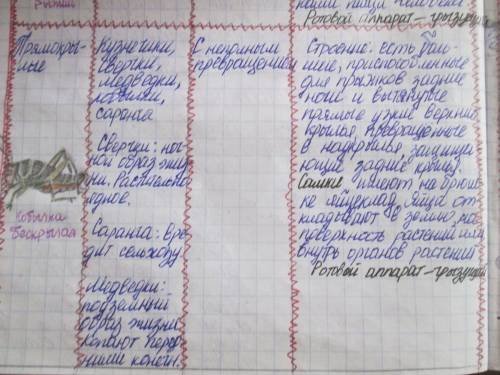 рыжий
нации пищи человека
Ротовой аппарат - грызущий
Прямокры-
лые
Кобылка
бескрылая
Кузнечики,
сверчки,
медведки,
кобылки,
саранча
Сверчки: ноч-
ной образ жиз-
ни. Растительно
ядное.
Саранча: Вре-
дит сельхозу
Медведки:
подземный
образ жизни
копают перед-
ними конечн.
С неполным
превращением
Строение: есть боль-
шие, приспособленные
для прыжков задние
ноги и вытянутые
прямые узкие верхние
крылья, превращенные
в надкрылья, защища-
ющие задние крылья.
Самки имеют на брюш-
ке яйцеклад. Яйца от
кладывают в землю, на
поверхность растений или
внутрь органов растений
Ротовой аппарат - грызущий